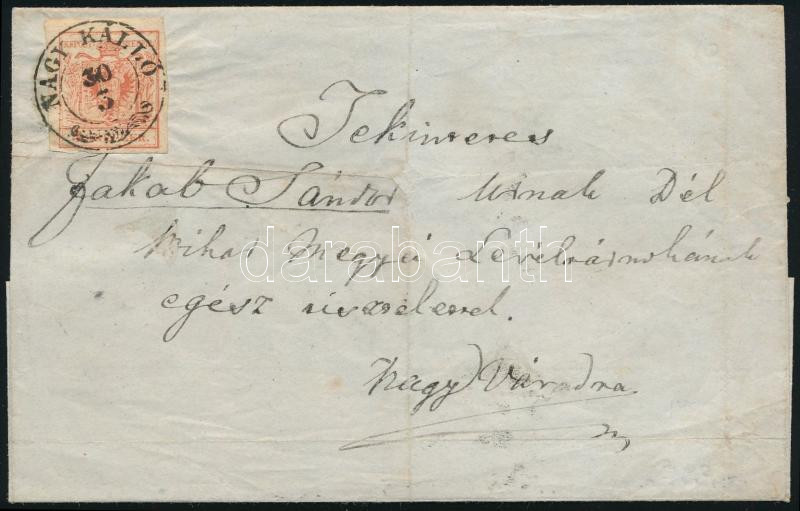 NAGY KÁLLÓ
30
5
Tekintetes
Jakab Sándor Urnak Dél
Bihar Megyei Levéltárnokának
egész tisztelettel.
Nagy Váradra
darabanth